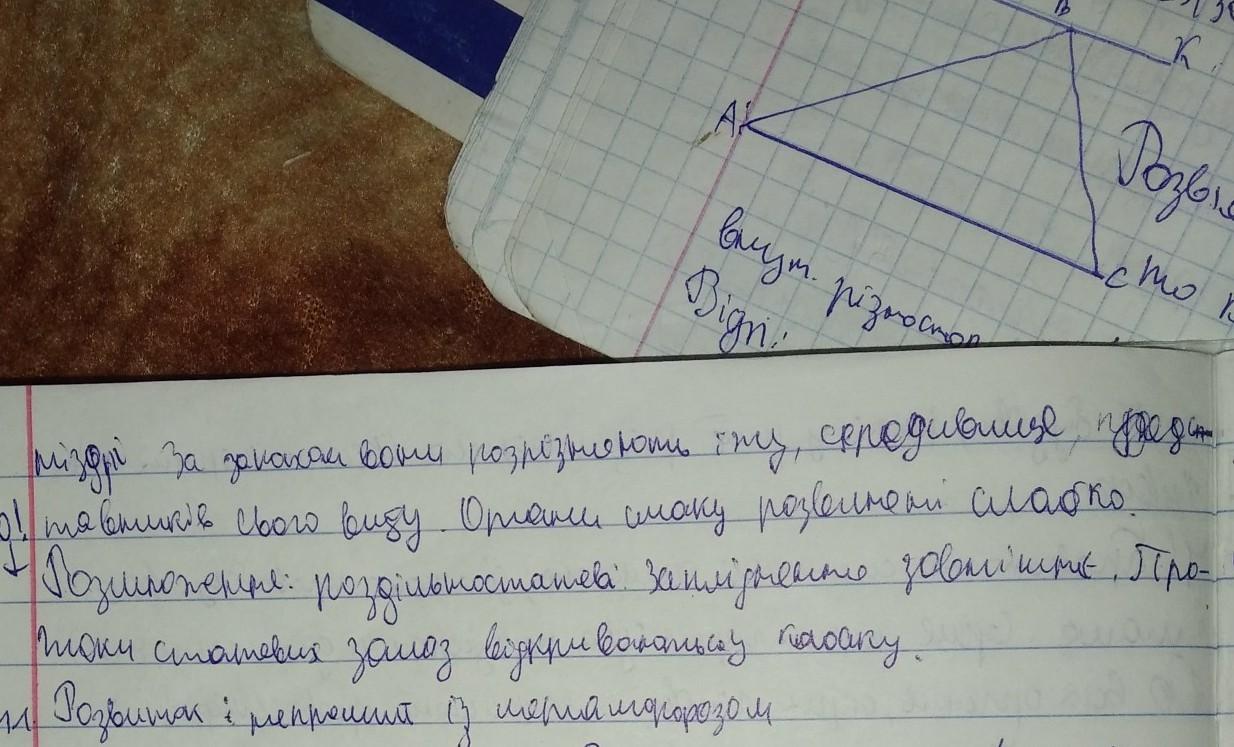 В
К
А
Розвʼя
С
то
внут. різностор
Відп.:
ніздрі. За запахом вони розрізняють їжу, середивище, предс-
тавників свого виду. Органи смаку розвинені слабко.
Розмноження: роздільностатеві. Запліднення зовнішнє. Про-
токи статевих залоз відкриваються у клоаку.
Розвиток: непрямий із метаморфозом